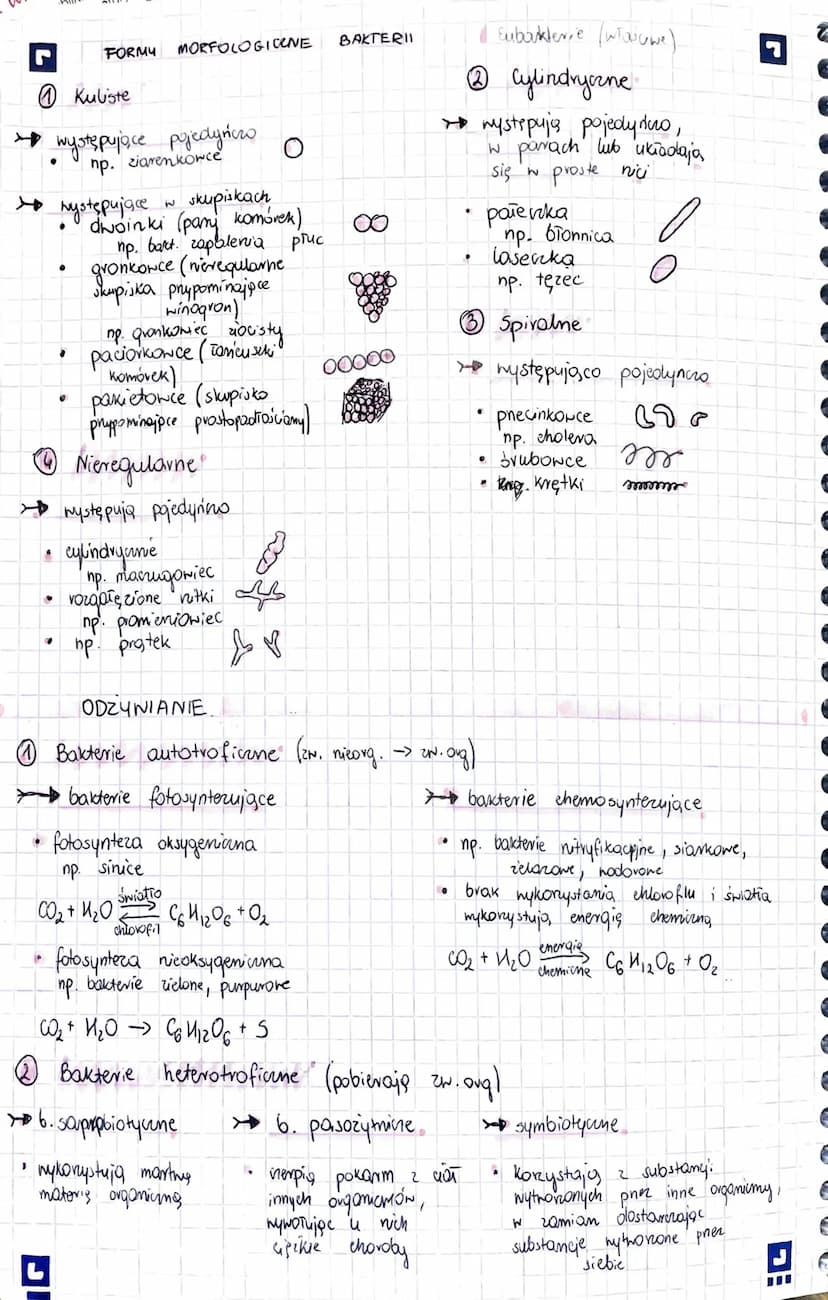 FORMY MORFOLOGICZNE BAKTERII
Eubakterie (właściwe)
① Kuliste
↣ występujące pojedyńczo
• np. ziarenkowce
↣ występujące w skupiskach
• dwoinki (pary komórek)
np. bakt. zapalenia płuc
• gronkowce (nieregularne
skupiska przypominające
winogron)
np. gronkowiec złocisty
• paciorkowce (łańcuszki
komórek)
• pakietowce (skupisko
przypominające prostopadłościany)
② Cylindryczne
↣ występują pojedyńczo,
w parach lub układają
się w proste nici
• pałeczka
np. błonnica
• laseczka
np. tężec
③ Spiralne
↣ występująco pojedynczo
• przecinkowce
np. cholera
• śrubowce
• krętki
④ Nieregularne
↣ występują pojedyńczo
• cylindryczne
np. maczugowiec
• rozgałęzione nitki
np. promieniowiec
• np. prątek
ODŻYWIANIE
① Bakterie autotroficzne (zw. nieorg. → zw. org)
↣ bakterie fotosyntezujące
• fotosynteza oksygeniczna
np. sinice
światło
CO₂ + H₂O ⇄ C₆H₁₂O₆ + O₂
chlorofil
• fotosynteza nieoksygeniczna
np. bakterie zielone, purpurowe
CO₂ + H₂O → C₆H₁₂O₆ + S
↣ bakterie chemosyntezujące
• np. bakterie nitryfikacyjne, siarkowe,
żelazowe, wodorowe
• brak wykorzystania chlorofilu i światła
wykorzystują energię chemiczną
energia
CO₂ + H₂O → C₆H₁₂O₆ + O₂
chemiczne
② Bakterie heterotroficzne (pobierają zw. org)
↣ b. saprobiotyczne
• wykorzystują martwą
materię organiczną
↣ b. pasożytnicze
• czerpią pokarm z ciał
innych organizmów,
wywołując u nich
ciężkie choroby
↣ symbiotyczne
• korzystają z substancji
wytworzonych przez inne organizmy,
w zamian dostarczając
substancje wytworzone przez
siebie